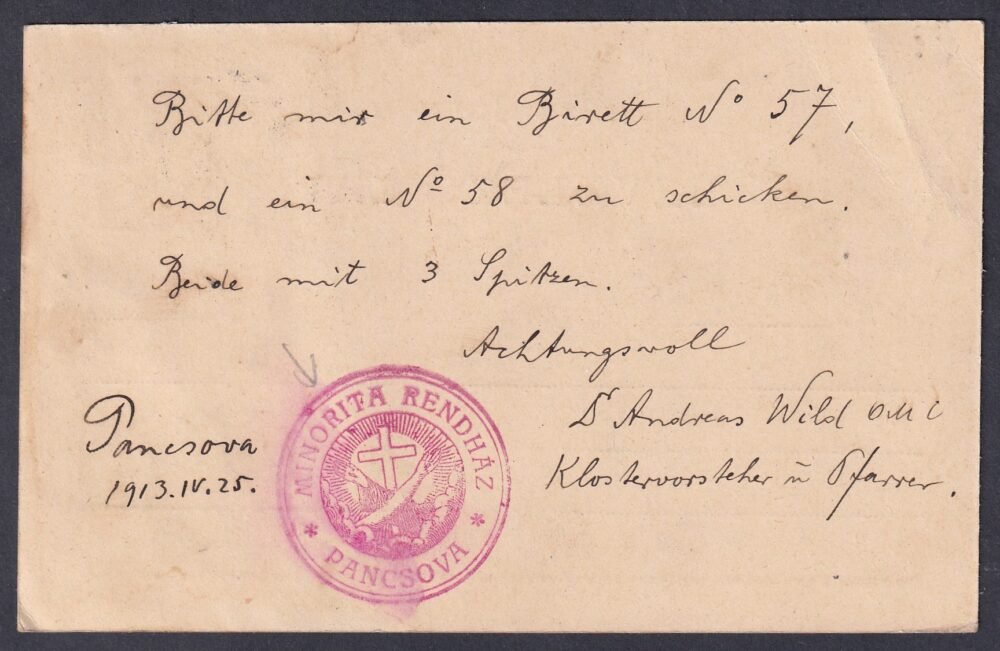 Bitte mir ein Birett Nº 57,
und ein Nº 58 zu schicken.
Beide mit 3 Spitzen.
Achtungsvoll
Dr Andreas Wild OMC
Klostervorsteher u Pfarrer.
Pancsova
1913.IV.25.
MINORITA RENDHÁZ
* PANCSOVA *